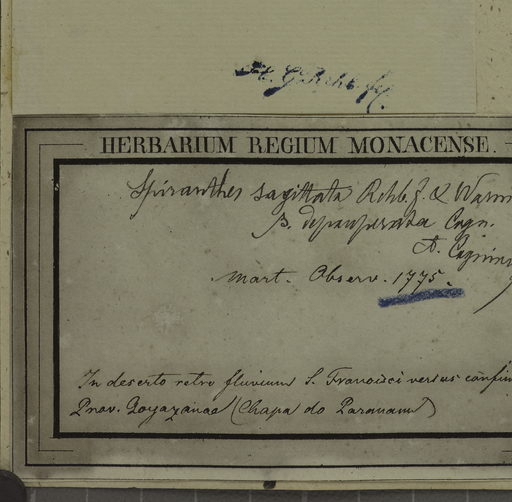 H. G. Rchb. f.
HERBARIUM REGIUM MONACENSE.
Spiranthes sagittata Rchb. f. & Warm
β. depauperata Cogn.
A. Cogniau
Mart. Observ. 1775.
In deserto retro fluvium S. Francisci versus confin
Prov. Goyazanae (Chapa do Paranam)